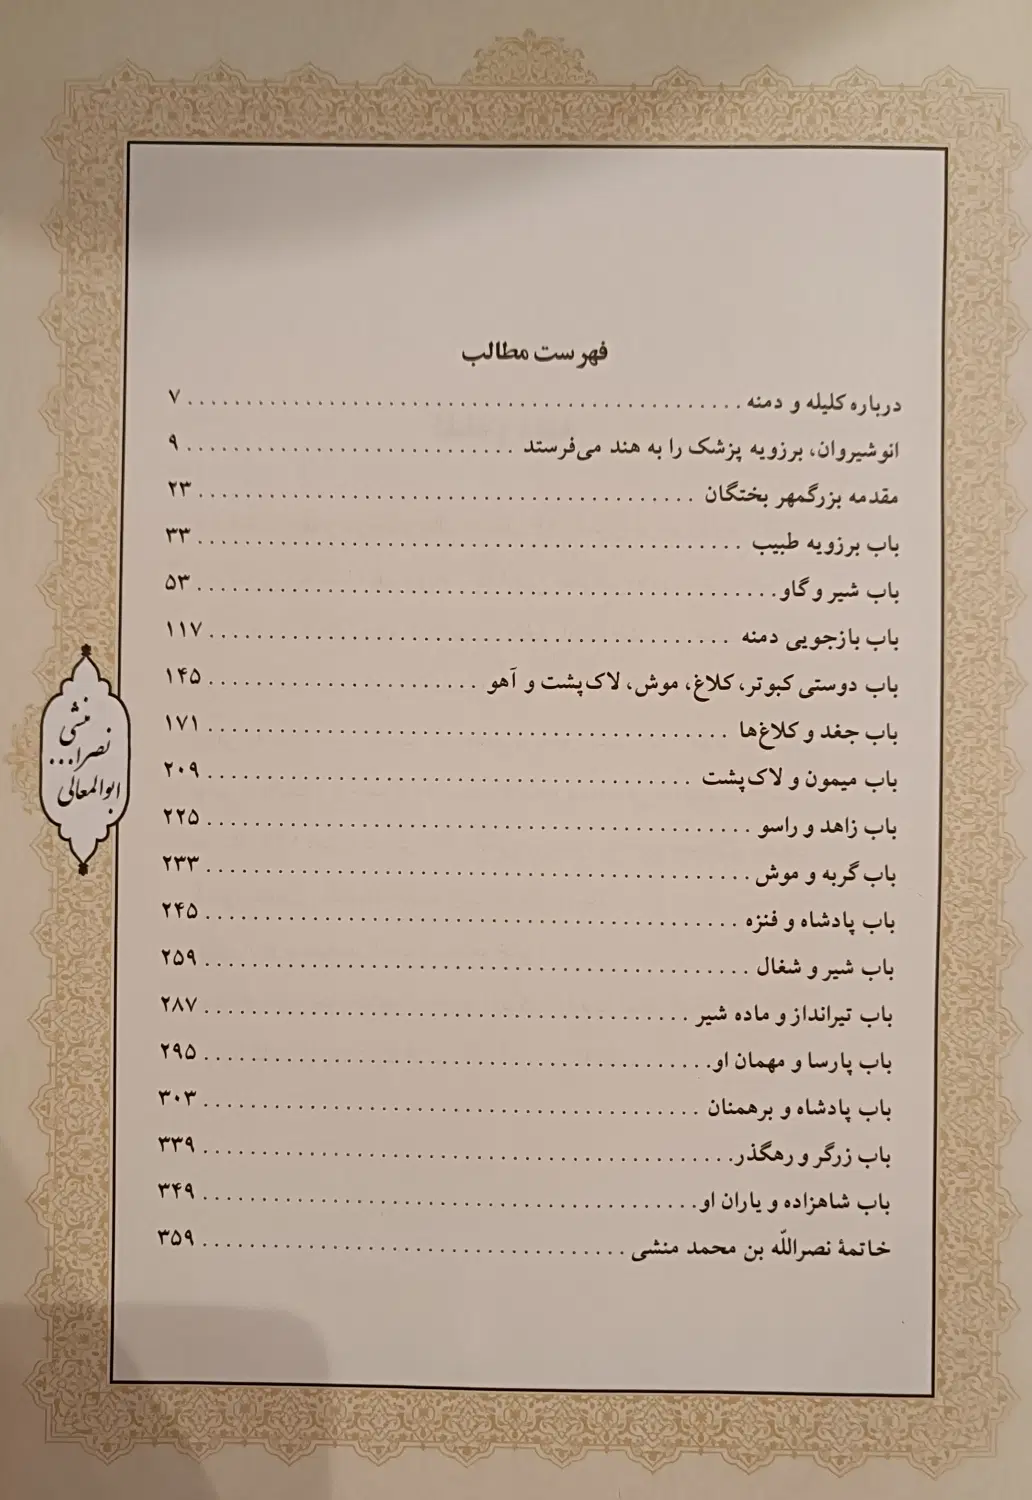 فهرست مطالب
درباره کلیله و دمنه ............................................... ۷
انوشیروان، برزویه پزشک را به هند می‌فرستد ............................ ۹
مقدمه بزرگمهر بختگان .......................................... ۲۳
باب برزویه طبیب .............................................. ۳۳
باب شیر و گاو ................................................. ۵۳
باب بازجویی دمنه ............................................ ۱۱۷
باب دوستی کبوتر، کلاغ، موش، لاک‌پشت و آهو ....................... ۱۴۵
باب جغد و کلاغ‌ها ............................................ ۱۷۱
باب میمون و لاک‌پشت ......................................... ۲۰۹
باب زاهد و راسو .............................................. ۲۲۵
باب گربه و موش .............................................. ۲۳۳
باب پادشاه و فنزه ............................................. ۲۴۵
باب شیر و شغال .............................................. ۲۵۹
باب تیرانداز و ماده شیر ......................................... ۲۸۷
باب پارسا و مهمان او ........................................... ۲۹۵
باب پادشاه و برهمنان .......................................... ۳۰۳
باب زرگر و رهگذر ............................................. ۳۳۹
باب شاهزاده و یاران او .......................................... ۳۴۹
خاتمهٔ نصراللّه بن محمد منشی .................................... ۳۵۹
منشی
نصرا...
ابوالمعالی